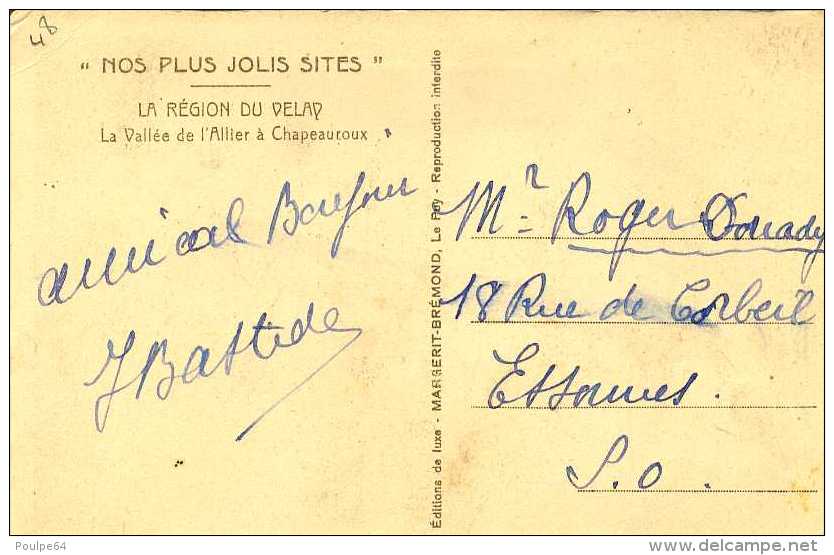 48
" NOS PLUS JOLIS SITES "
LA RÉGION DU VELAY
La Vallée de l'Allier à Chapeauroux
amical Bonjour
J Bastide
Éditions de luxe - MARGERIT-BRÉMOND, Le Puy - Reproduction interdite
Mr Roger Douady
18 Rue de Corbeil
Essonnes.
S.O.
Poulpe64
delcampe.net